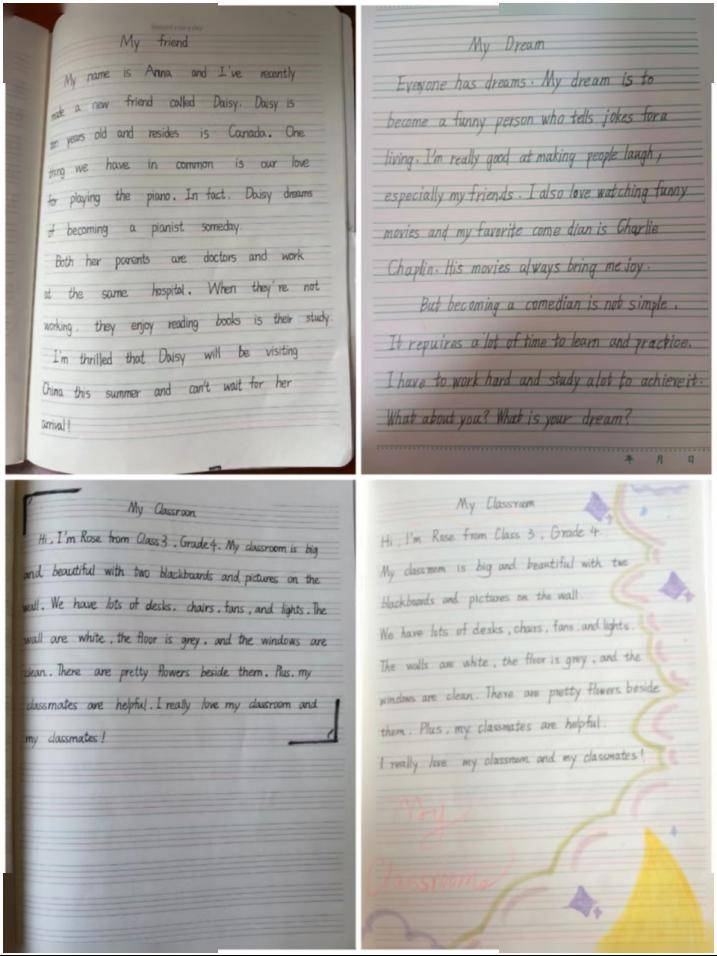 My friend
My name is Anna and I've recently
made a new friend called Daisy. Daisy is
ten years old and resides is Canada. One
thing we have in common is our love
for playing the piano. In fact. Daisy dreams
of becoming a pianist someday.
Both her parents are doctors and work
at the same hospital. When they're not
working, they enjoy reading books is their study.
I'm thrilled that Daisy will be visiting
China this summer and can't wait for her
arrival!
My Dream
Everyone has dreams. My dream is to
become a funny person who tells jokes for a
living. I'm really good at making people laugh,
especially my friends. I also love watching funny
movies and my favorite come dian is Charlie
Chaplin. His movies always bring me joy.
But becoming a comedian is not simple.
It repuires a lot of time to learn and practice.
I have to work hard and study a lot to achieve it.
What about you? What is your dream?
年 月 日
My Classroon
Hi, I'm Rose from Class 3, Grade 4. My classroom is big
and beautiful with two blackboards and pictures on the
wall. We have lots of desks, chairs, fans, and lights. The
wall are white, the floor is grey, and the windows are
clean. There are pretty flowers beside them. Plus, my
classmates are helpful. I really love my classroom and
my classmates!
My Classroom
Hi, I'm Rose from Class 3, Grade 4.
My classroom is big and beautiful with two
blackboards and pictures on the wall.
We have lots of desks, chairs, fans, and lights.
The walls are white, the floor is grey, and the
windows are clean. There are pretty flowers beside
them. Plus, my classmates are helpful.
I really love my classroom and my classmates!
My
Classroom